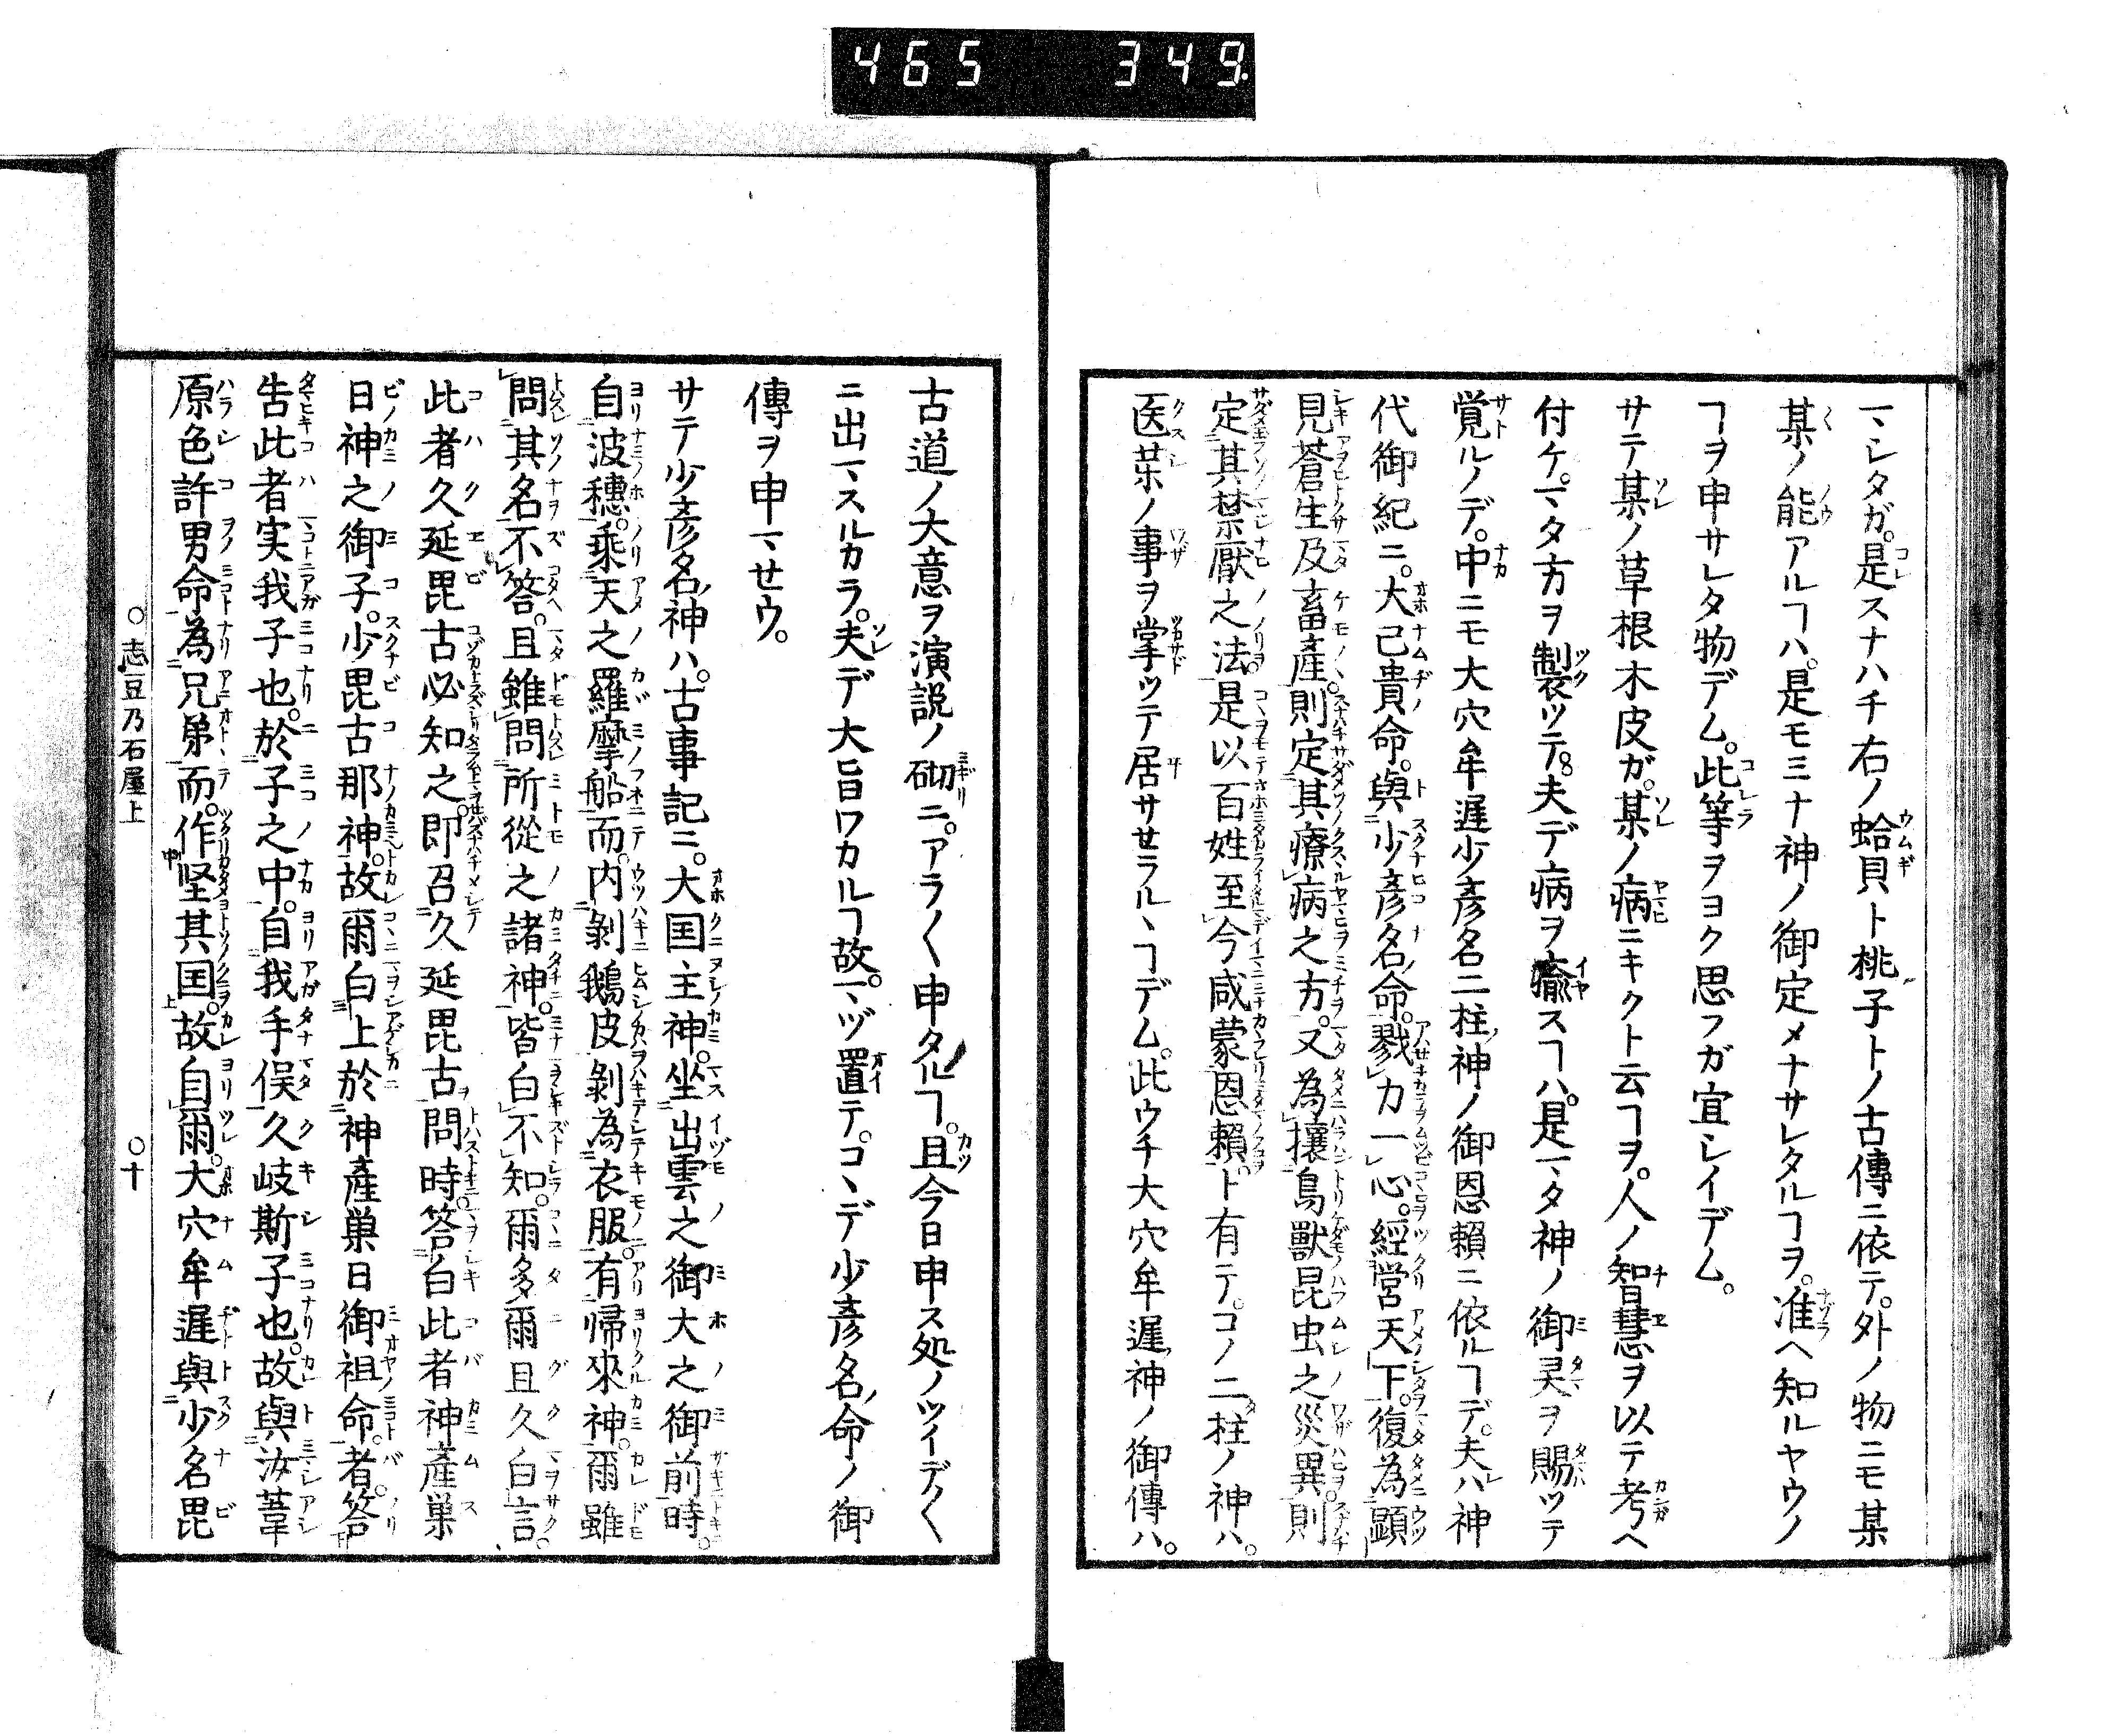 465 349.
マシタガ。是スナハチ右ノ蛤貝ト桃子トノ古傳ニ依テ。外ノ物ニモ某
某ノ能アルヿハ。是モミナ神ノ御定メナサレタルヿヲ。准ヘ知ルヤウノ
ヿヲ申サレタ物デム。此等ヲヨク思フガ宜レイデム。
サテ某ノ草根木皮ガ。某ノ病ニキクト云ヿヲ。人ノ智慧ヲ以テ考ヘ
付ケ。マタ方ヲ製ツテ。夫デ病ヲ瘉スヿハ。是マタ神ノ御灵ヲ賜ツテ
覚ルノデ。中ニモ大穴牟遅少彦名二柱ノ神ノ御恩頼ニ依ルヿデ。夫ハ神
代御紀ニ。大己貴命。與少彦名命。戮力一心。經営天下。復為顕
見蒼生及畜產。則定其療病之方。又為攘鳥獸昆虫之災異。則
定其禁厭之法。是以百姓至今咸蒙恩賴。ト有テ。コノ二柱ノ神ハ。
医茱ノ事ヲ掌ツテ居サセラルヽヿデム。此ウチ大穴牟遅ノ神ノ御傳ハ。
古道ノ大意ヲ演説ノ砌ニ。アラ〱申タルヿ。且今日申ス処ノツイデ〱
ニ出マスルカラ。夫デ大旨ワカルヿ故。マヅ置テ。コヽデ少彦名ノ命ノ御
傳ヲ申マせウ。
サテ少彦名ノ神ハ。古事記ニ。大国主神。坐出雲之御大之御前時。
自波穗。乘天之羅摩船而。内剝鵝皮剝為衣服。有帰來神。爾雖
問其名不答。且雖問所從之諸神。皆白不知。爾多爾且久白言。
此者久延毘古必知之。即召久延毘古問時。答白此者神產巣
日神之御子。少毘古那神。故爾白上於神產巣日御祖命者。答
告此者実我子也。於子之中。自我手俣久岐斯子也。故與汝葦
原色許男命為兄弟而。作堅其国。故自爾。大穴牟遅與少名毘
○志豆乃石屋上 ○十